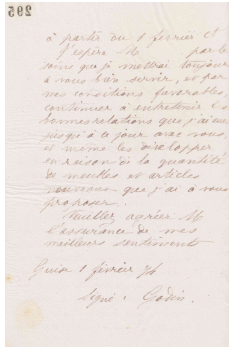 295
à partir du 1 février ct
J'espère M par le
soins que je mettrai toujours
à vous bien servir, et par
mes conditions favorables,
continuer à entretenir les
bonnes relations que j'ai eues
jusqu'à ce jour avec vous,
et même les développer
en raison de la quantité
de meubles et articles
nouveaux que j'ai à vous
proposer.
Veuillez agréer M
l'assurance de mes
meilleurs sentiments
Guise 1 février 74
Signé : Godin